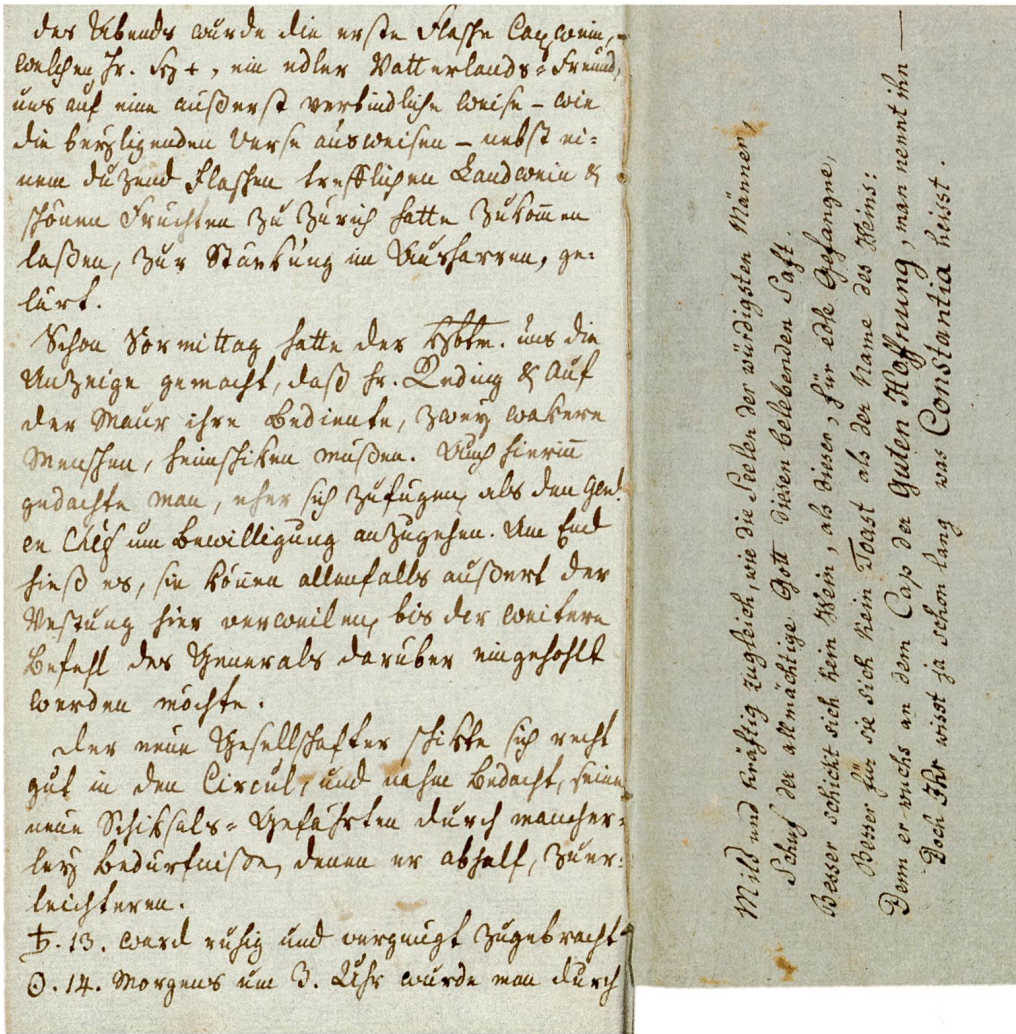 des Abends wurde die erste Flasche Capwein,
welchen Hr. Fez +, ein edler Vatterlands=Freund,
uns auf eine außerst verbindliche Weise – wie
die beyligenden Verse ausweisen – nebst ei=
nem duzend Flaschen trefflichen Landwein &
schönen Früchten zu Zürich hatte zukom̅en
laßen, zur Stärkung im Ausharren, ge=
lärt.
Schon Vormittag hatte der uns die
Anzeige gemacht, daß Hr. Reding & Auf
der Maur ihre Bediente, zwey wakere
Menschen, heimschiken müßen. Auch hierin̅
gedachte man, eher sich zufügen, als den Genl.
en Chef um Bewilligung anzugehen. Am End
hieß es, sie kön̅en allenfalls außert der
Vestung hier verweilen, bis der weitere
Befehl des Generals darüber eingehohlt
werden möchte.
Der neue Gesellschafter schikte sich recht
gut in den Circul, und nahm Bedacht, seine
neue Schiksals=Gefährten durch mancher=
ley Bedürfniße, denen er abhalf, zuer=
leichteren.
♄. 13. ward ruhig und vergnügt zugebracht
☉. 14. Morgens um 3. Uhr wurde man durch
Mild und kräftig zugleich, wie die Seelen der würdigsten Männer,
Schuf der allmächtige Gott diesen belebenden Saft.
Besser schickt sich kein Wein, als dieser, für edle Gefangne,
Besser für sie sich kein Toast als der Name des Weins:
Denn er wuchs an dem Cap der Guten Hoffnung, man nennt ihn —
Doch Ihr wisst ja schon lang was Constantia heisst.